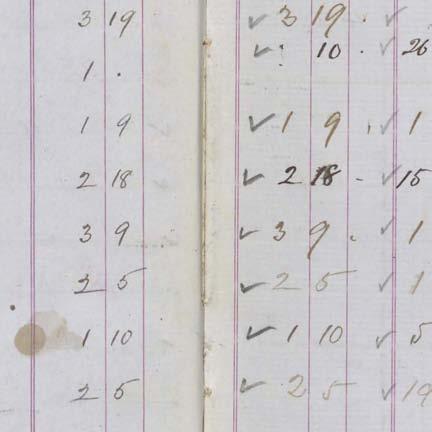 3 19 ✓ 3 19 . ✓
✓ : 10 . ✓ 26
1 .
1 9 ✓ 1 9 . ✓ 1
2 18 ✓ 2 18 - ✓ 15
3 9 ✓ 3 9 . ✓ 1
2 5 ✓ 2 5 ✓ 1
1 10 ✓ 1 10 ✓ 5
2 5 ✓ 2 5 ✓ 19